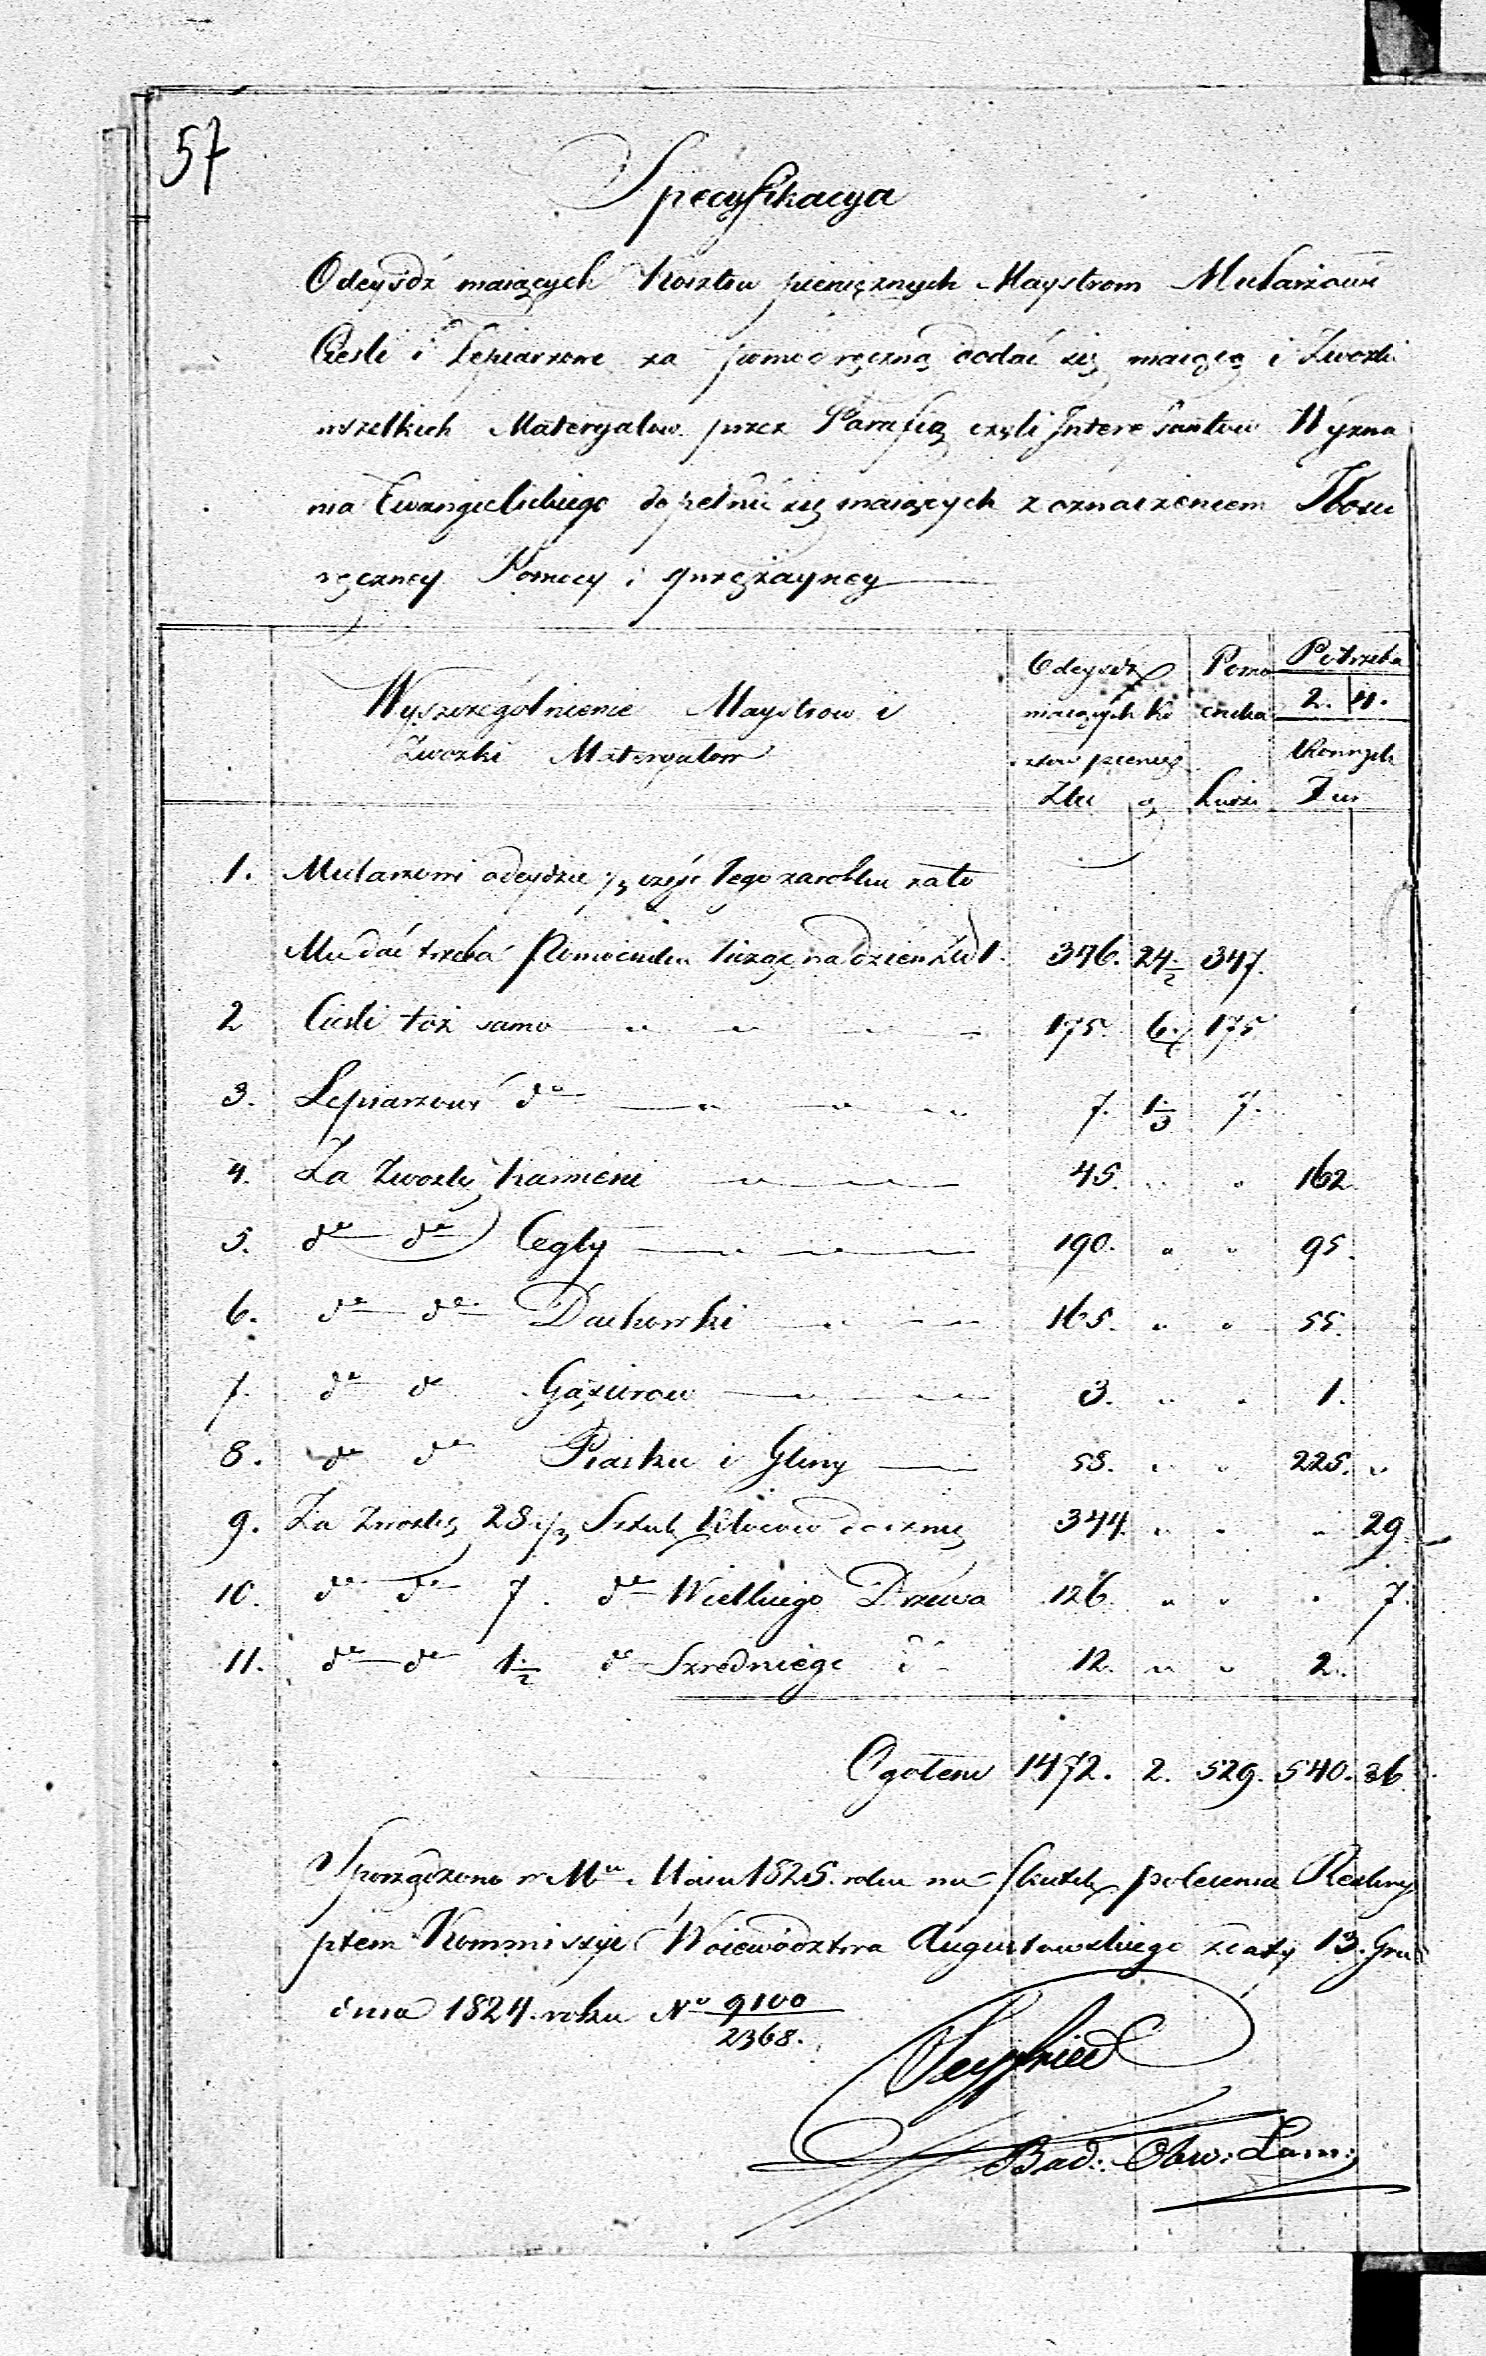 57
Specyfikacya
Odeyśdź maiących Kosztow pieniężnych Maystrom Mularzowi
Cieśli i Lepiarzowi za pomoc ręczną dodać się maiącą i Zwozki
wszelkich Materyałow przez Parafią czyli Interesantow Wyzna
nia Ewangielickiego dopełnić się maiących z oznaczeniem Ilości
ręczney Pomocy i sprzężayney
Wyszczegolnienie Maystrow i Zwozki Materyałow | Odeyśdź maiących ko sztow pienięż | Pomo cnika | Potrzeba
2. | 4.
Konnych
Złu | g | Ludzi | Fur
1. Mularzowi odeydzie 1/3 część tego zarobku za to
Mu dać trzeba Pomocnika licząc na dzień Zł 1. 346. 24 1/2 347.
2 Cieśli toż samo 175. 6 175
3. Lepiarzowi do 7. 1/3 7.
4. Za Zwozkę Kamieni 45. " " 162.
5. do do Cegły 190. " " 95.
6. do do Dachowki 165. " " 55.
7. do do Gąsiorow 3. " " 1.
8. do do Piasku i Gliny 58. " " 225. "
9. Za Zwozkę 28 1/3 Sztuk Klocow 344. " " " 29.
10. do do 7. do Wielkiego Drzewa 126. " " " 7.
11. do do 1 1/2 do Szredniego do 12. " " 2.
Ogołem 1472. 2. 529. 540. 36.
Sporządzono w Maiu 1825. roku na skutek polecenia Reskry
ptem Kommissyi Woiewodztwa Augustowskiego z daty 13. Gru
dnia 1824. roku No 9100
2368.
Seyffried
Bud: Obw: Łom: